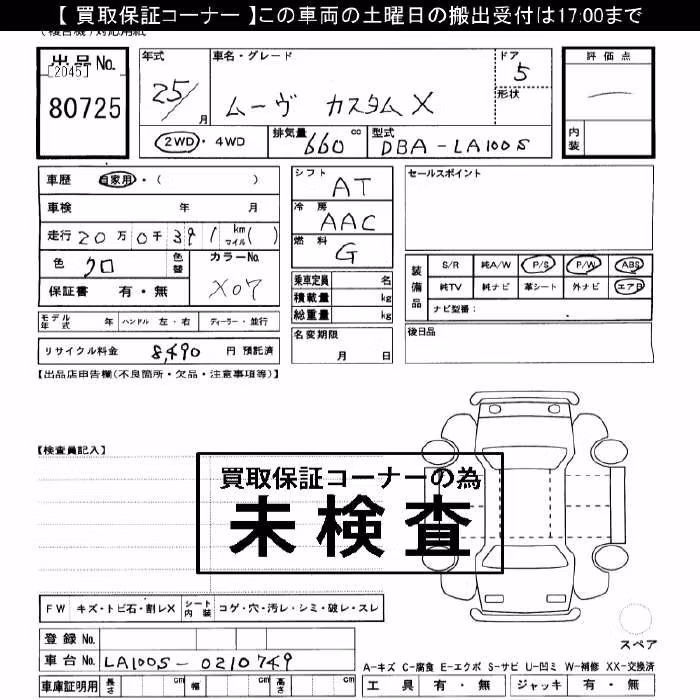 【 買取保証コーナー 】この車両の土曜日の搬出受付は17:00まで
出品No.
[2045]
80725
年式
25/
月
車名・グレード
ムーヴ カスタム X
ドア
5
形状
評価点
内装
2WD・4WD
排気量
660
cc
型式
DBA-LA100S
車歴 自家用・( )
車検 年 月
走行 20万0千391 km マイル ( )
色 クロ 色替
カラーNo.
X07
保証書 有・無
モデル年式 年 ハンドル 左・右 ディーラー・並行
リサイクル料金 8,490 円 預託済
シフト
AT
冷房
AAC
燃料
G
乗車定員 名
積載量 kg
総重量 kg
名変期限
月 日
セールスポイント
装備品
S/R 純A/W P/S P/W ABS
純TV 純ナビ 革シート 外ナビ エアB
ナビ型番:
後日品
【出品店申告欄(不良箇所・欠品・注意事項等)】
【検査員記入】
買取保証コーナーの為
未検査
FW キズ・トビ石・割レX シート内装 コゲ・穴・汚レ・シミ・破レ・スレ
登録No.
車台No. LA100S-0210749
車庫証明用 長さ cm 幅 cm 高さ cm
スペア
A-キズ C-腐食 E-エクボ S-サビ U-凹ミ W-補修 XX-交換済
工具 有・無 ジャッキ 有・無